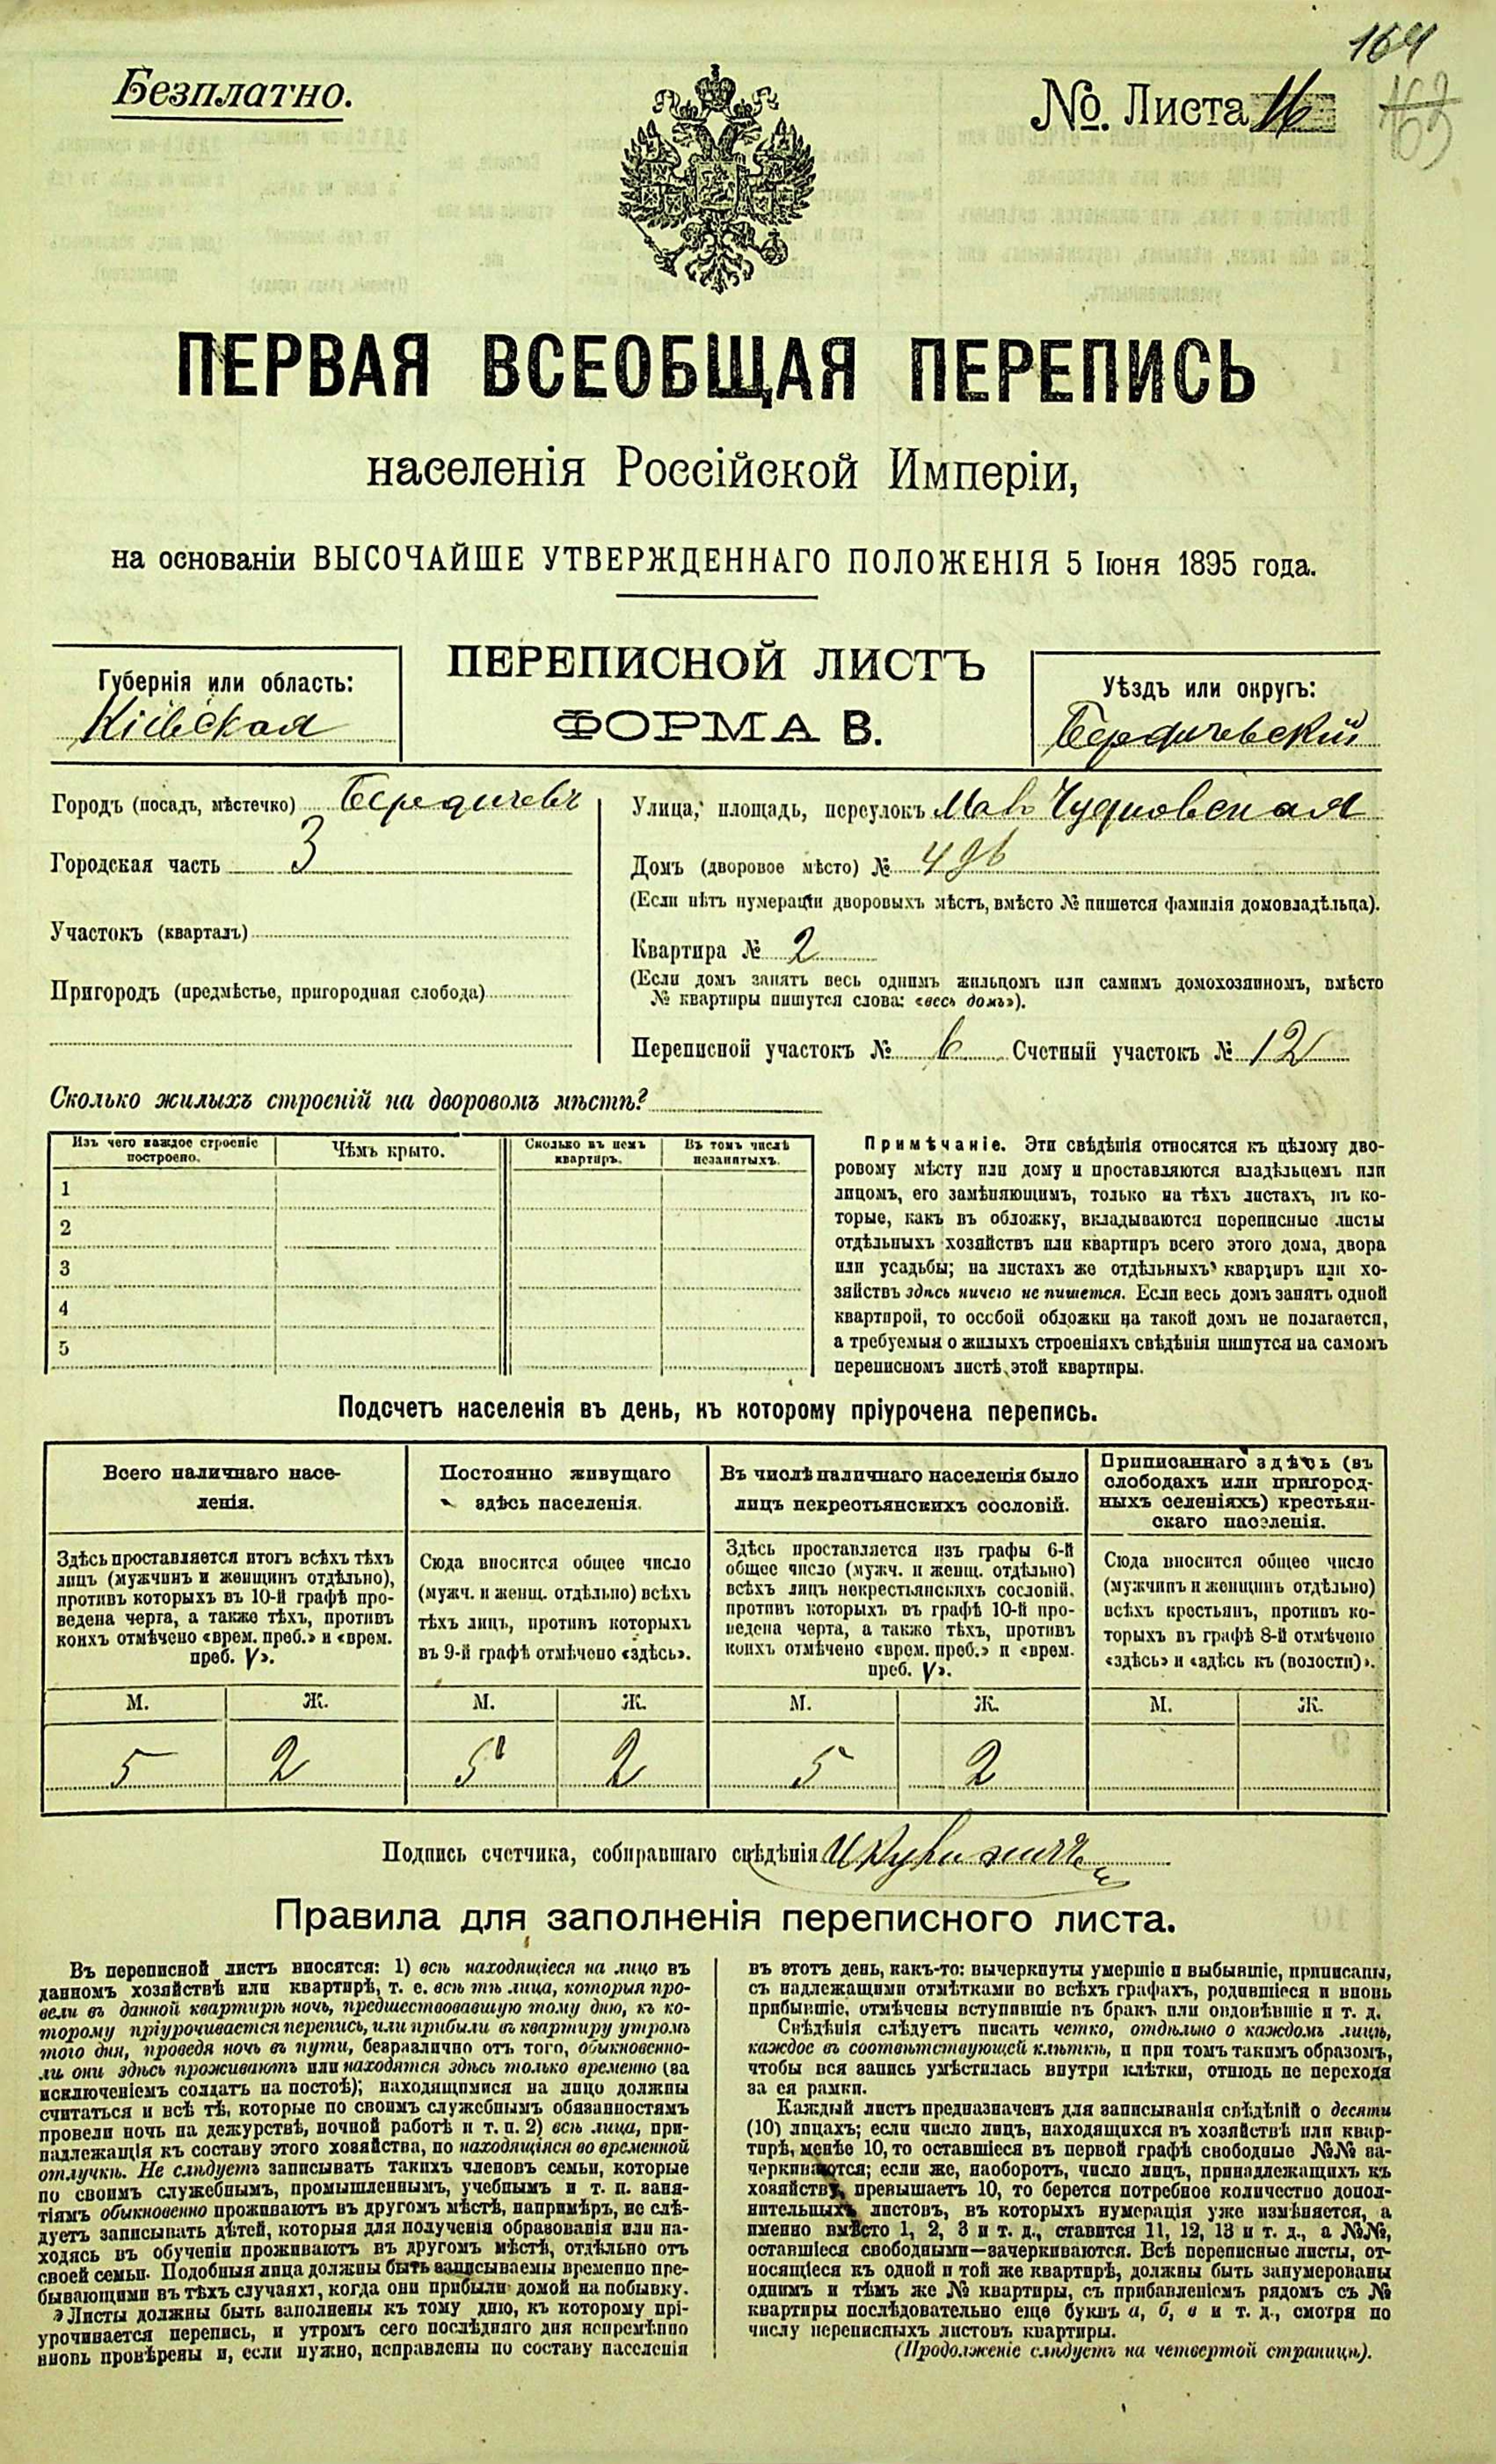 164
163
Безплатно.
№. Листа 16
ПЕРВАЯ ВСЕОБЩАЯ ПЕРЕПИСЬ
населенія Россійской Имперіи,
на основаніи ВЫСОЧАЙШЕ УТВЕРЖДЕННАГО ПОЛОЖЕНІЯ 5 Іюня 1895 года.
Губернія или область:
Кіевская
ПЕРЕПИСНОЙ ЛИСТЪ
ФОРМА В.
Уѣздъ или округъ:
Бердичевскій
Городъ (посадъ, мѣстечко) Бердичевъ
Городская часть 3
Участокъ (кварталъ)
Пригородъ (предмѣстье, пригородная слобода)
Улица, площадь, переулокъ Мал Чудновская
Домъ (дворовое мѣсто) №
(Если нѣтъ нумераціи дворовыхъ мѣстъ, вмѣсто № пишется фамилія домовладѣльца).
Квартира № 2
(Если домъ занятъ весь однимъ жильцомъ или самимъ домохозяиномъ, вмѣсто
№ квартиры пишутся слова: «весь домъ»).
Переписной участокъ № 6 Счетный участокъ № 12
Сколько жилыхъ строеній на дворовомъ мѣстѣ?
Изъ чего каждое строеніе построено.
Чѣмъ крыто.
Сколько въ немъ квартиръ.
Въ томъ числѣ незанятыхъ.
1
2
3
4
5
Примѣчаніе. Эти свѣдѣнія относятся къ цѣлому дво-
ровому мѣсту или дому и проставляются владѣльцемъ или
лицомъ, его замѣняющимъ, только на тѣхъ листахъ, въ ко-
торые, какъ въ обложку, вкладываются переписные листы
отдѣльныхъ хозяйствъ или квартиръ всего этого дома, двора
или усадьбы; на листахъ же отдѣльныхъ квартиръ или хо-
зяйствъ здѣсь ничего не пишется. Если весь домъ занятъ одной
квартирой, то особой обложки на такой домъ не полагается,
а требуемыя о жилыхъ строеніяхъ свѣдѣнія пишутся на самомъ
переписномъ листѣ этой квартиры.
Подсчетъ населенія въ день, къ которому пріурочена перепись.
Всего наличнаго насе-
ленія.
Здѣсь проставляется итогъ всѣхъ тѣхъ
лицъ (мужчинъ и женщинъ отдѣльно),
противъ которыхъ въ 10-й графѣ про-
ведена черта, а также тѣхъ, противъ
коихъ отмѣчено «врем. преб.» и «врем.
преб. V».
Постоянно живущаго
здѣсь населенія.
Сюда вносится общее число
(мужч. и женщ. отдѣльно) всѣхъ
тѣхъ лицъ, противъ которыхъ
въ 9-й графѣ отмѣчено «здѣсь».
Въ числѣ наличнаго населенія было
лицъ некрестьянскихъ сословій.
Здѣсь проставляется изъ графы 6-й
общее число (мужч. и женщ. отдѣльно)
всѣхъ лицъ некрестьянскихъ сословій,
противъ которыхъ въ графѣ 10-й про-
ведена черта, а также тѣхъ, противъ
коихъ отмѣчено «врем. преб.» и «врем.
преб. V».
Приписаннаго здѣсь (въ
слободахъ или пригород-
ныхъ селеніяхъ) крестьян-
скаго населенія.
Сюда вносится общее число
(мужчинъ и женщинъ отдѣльно)
всѣхъ крестьянъ, противъ ко-
торыхъ въ графѣ 8-й отмѣчено
«здѣсь» и «здѣсь къ (волости)».
М. Ж. М. Ж. М. Ж. М. Ж.
5 2 5 2 5 2
Подпись счетчика, собиравшаго свѣдѣнія
Правила для заполненія переписного листа.
Въ переписной листъ вносятся: 1) всѣ находящіеся на лицо въ
данномъ хозяйствѣ или квартирѣ, т. е. всѣ тѣ лица, которыя про-
вели въ данной квартирѣ ночь, предшествовавшую тому дню, къ ко-
торому пріурочивается перепись, или прибыли въ квартиру утромъ
того дня, проведя ночь въ пути, безразлично отъ того, обыкновенно-
ли они здѣсь проживаютъ или находятся здѣсь только временно (за
исключеніемъ солдатъ на постоѣ); находящимися на лицо должны
считаться и всѣ тѣ, которые по своимъ служебнымъ обязанностямъ
провели ночь на дежурствѣ, ночной работѣ и т. п. 2) всѣ лица, при-
надлежащія къ составу этого хозяйства, но находящіяся во временной
отлучкѣ. Не слѣдуетъ записывать такихъ членовъ семьи, которые
по своимъ служебнымъ, промышленнымъ, учебнымъ и т. п. заня-
тіямъ обыкновенно проживаютъ въ другомъ мѣстѣ, напримѣръ, не слѣ-
дуетъ записывать дѣтей, которыя для полученія образованія или на-
ходясь въ обученіи проживаютъ въ другомъ мѣстѣ, отдѣльно отъ
своей семьи. Подобныя лица должны быть записываемы временно пре-
бывающими въ тѣхъ случаяхъ, когда они прибыли домой на побывку.
Листы должны быть заполнены къ тому дню, къ которому прі-
урочивается перепись, и утромъ сего послѣдняго дня непремѣнно
вновь провѣрены и, если нужно, исправлены по составу населенія
въ этотъ день, какъ-то: вычеркнуты умершіе и выбывшіе, приписаны,
съ надлежащими отмѣтками во всѣхъ графахъ, родившіеся и вновь
прибывшіе, отмѣчены вступившіе въ бракъ или овдовѣвшіе и т. д.
Свѣдѣнія слѣдуетъ писать четко, отдѣльно о каждомъ лицѣ,
каждое въ соотвѣтствующей клѣткѣ, и при томъ такимъ образомъ,
чтобы вся запись умѣстилась внутри клѣтки, отнюдь не переходя
за ея рамки.
Каждый листъ предназначенъ для записыванія свѣдѣній о десяти
(10) лицахъ; если число лицъ, находящихся въ хозяйствѣ или квар-
тирѣ, менѣе 10, то оставшіеся въ первой графѣ свободные №№ за-
черкиваются; если же, наоборотъ, число лицъ, принадлежащихъ къ
хозяйству, превышаетъ 10, то берется потребное количество допол-
нительныхъ листовъ, въ которыхъ нумерація уже измѣняется, а
именно вмѣсто 1, 2, 3 и т. д., ставится 11, 12, 13 и т. д., а №№,
оставшіеся свободными—зачеркиваются. Всѣ переписные листы, от-
носящіеся къ одной и той же квартирѣ, должны быть занумерованы
однимъ и тѣмъ же № квартиры, съ прибавленіемъ рядомъ съ №
квартиры послѣдовательно еще буквъ а, б, в и т. д., смотря по
числу переписныхъ листовъ квартиры.
(Продолженіе слѣдуетъ на четвертой страницѣ).